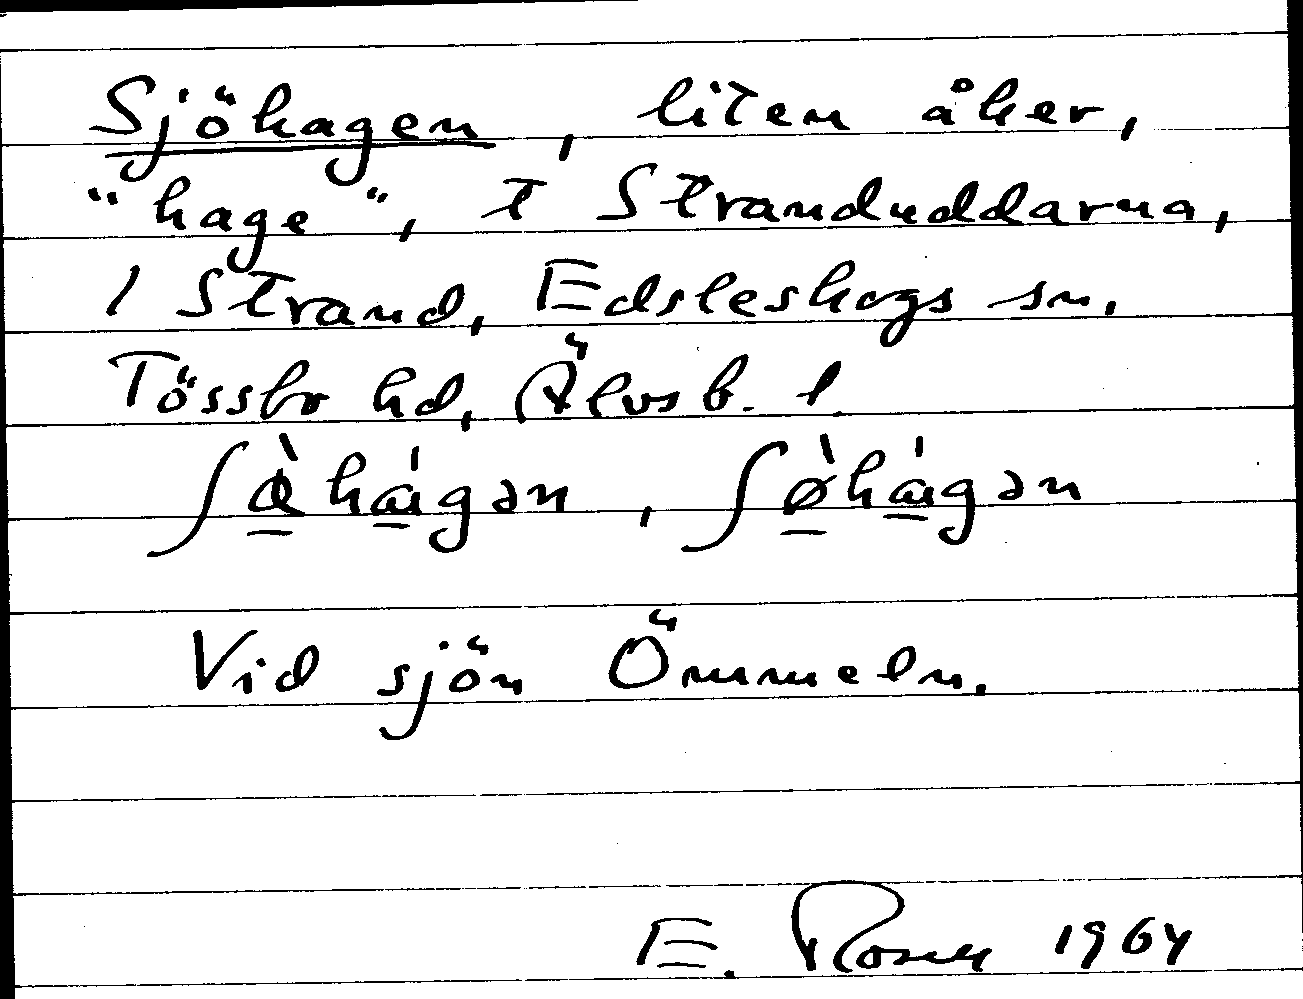 Sjöhagen, liten åker,
"hage", t Stranduddarna,
1 Strand, Edsleskogs sn.
Tössbo hd, Älvsb. l.
ʃø̀hágən, ʃø̀hágən
Vid sjön Ömmeln.
E. Rosen 1964